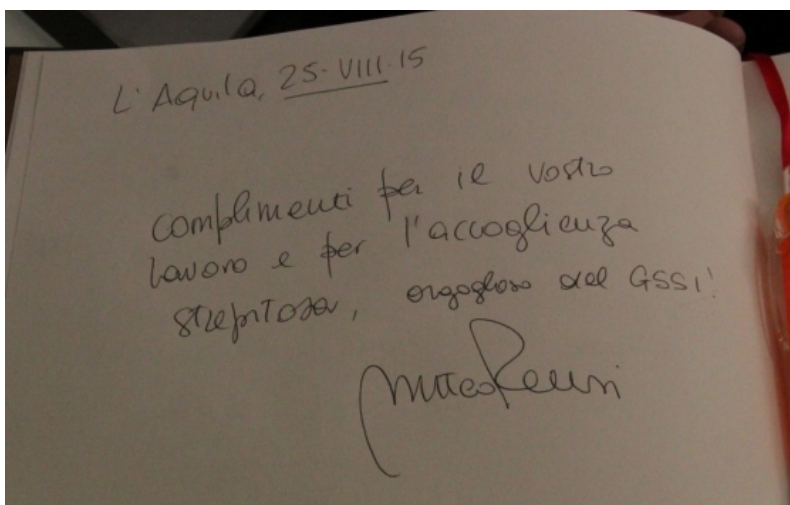 L'Aquila, 25-VIII-15
Complimenti per il vostro
lavoro e per l'accoglienza
strepitosa, orgoglioso del GSSI!
Matteo Renzi